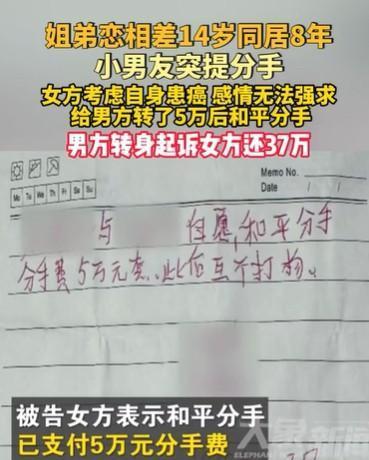 姐弟恋相差14岁同居8年
小男友突提分手
女方考虑自身患癌 感情无法强求
给男方转了5万后和平分手
男方转身起诉女方还37万
Memo No.
Mo Tu We Th Fr Sa Su
Date / /
与 自愿,和平分手
分手费5万元卖.此后互不打扰。
被告女方表示和平分手
已支付5万元分手费
大象新闻
ELEPHANT NEWS